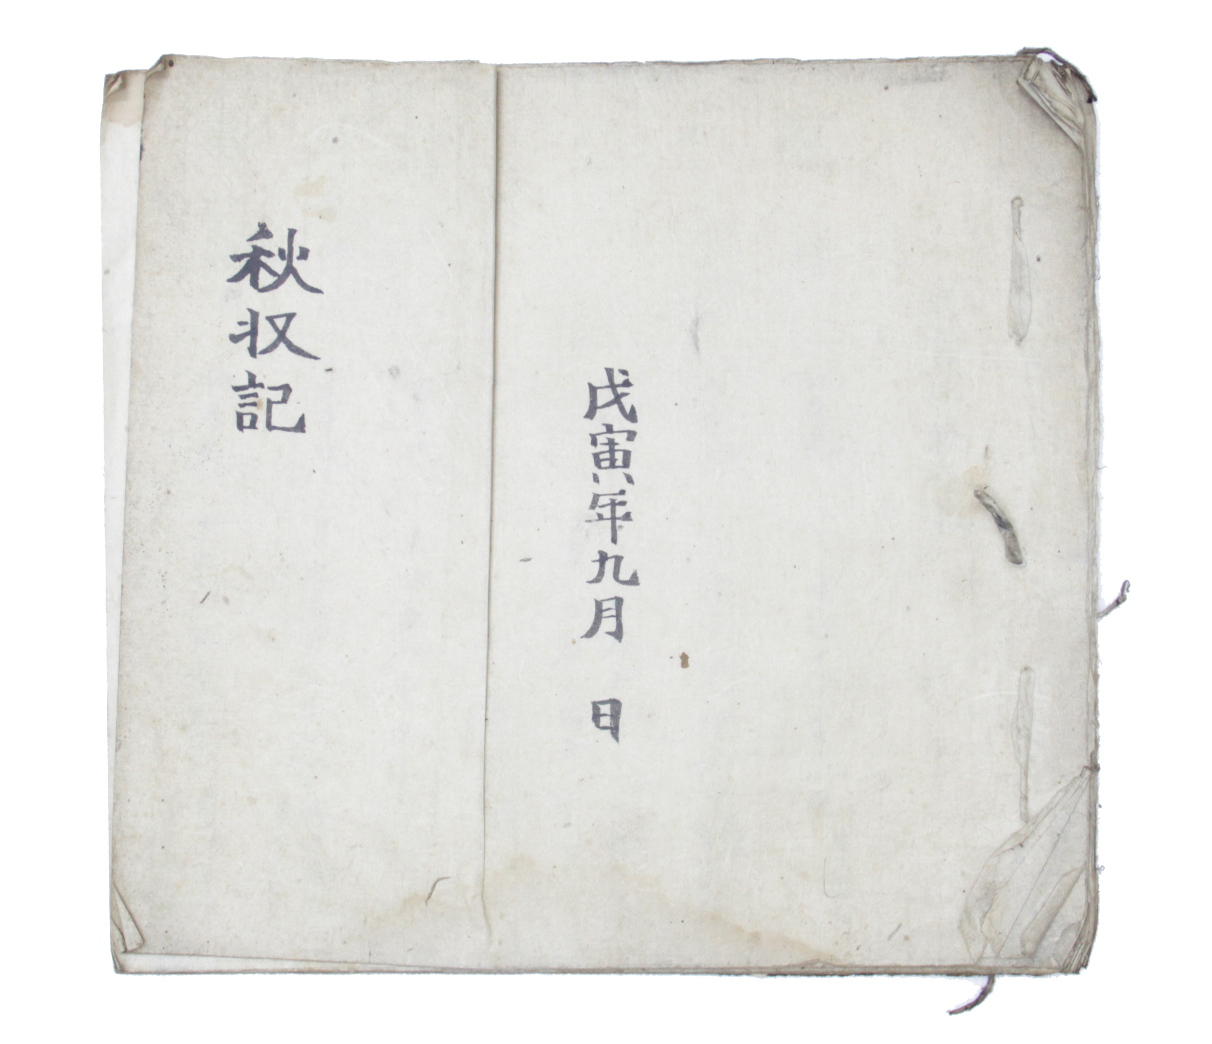 戊寅年九月 日
秋収記